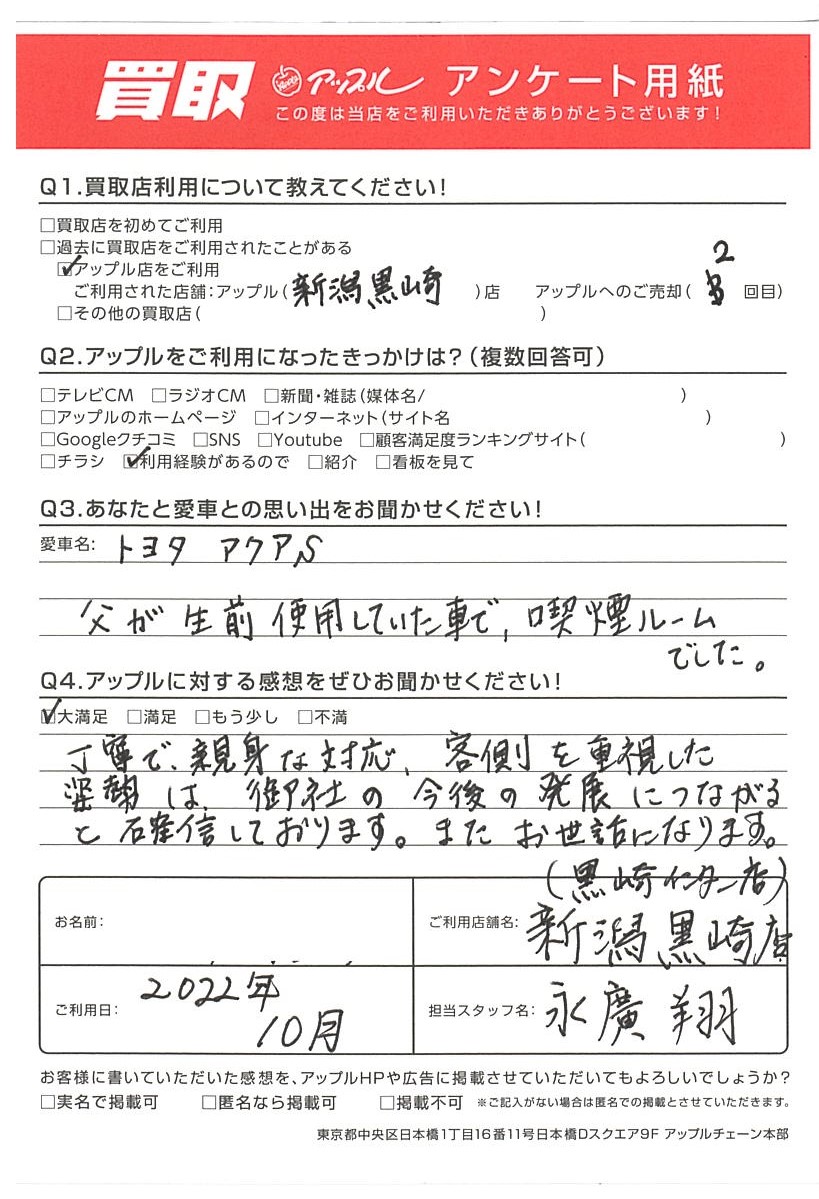 買取 アップル アンケート用紙
この度は当店をご利用いただきありがとうございます!
Q1.買取店利用について教えてください!
□買取店を初めてご利用
□過去に買取店をご利用されたことがある
☑アップル店をご利用
2
ご利用された店舗:アップル(新潟黒崎)店 アップルへのご売却( 回目)
□その他の買取店( )
Q2.アップルをご利用になったきっかけは?(複数回答可)
□テレビCM □ラジオCM □新聞・雑誌(媒体名/ )
□アップルのホームページ □インターネット(サイト名 )
□Googleクチコミ □SNS □Youtube □顧客満足度ランキングサイト( )
□チラシ ☑利用経験があるので □紹介 □看板を見て
Q3.あなたと愛車との思い出をお聞かせください!
愛車名: トヨタ アクアS
父が生前使用していた車で、喫煙ルーム
でした。
Q4.アップルに対する感想をぜひお聞かせください!
☑大満足 □満足 □もう少し □不満
丁寧で、親身な対応、客側を重視した
姿勢は、御社の今後の発展につながる
と確信しております。またお世話になります。
(黒崎インター店)
お名前:
ご利用店舗名: 新潟黒崎店
ご利用日: 2022年
10月
担当スタッフ名: 永廣 翔
お客様に書いていただいた感想を、アップルHPや広告に掲載させていただいてもよろしいでしょうか?
□実名で掲載可 □匿名なら掲載可 □掲載不可 ※ご記入がない場合は匿名での掲載とさせていただきます。
東京都中央区日本橋1丁目16番11号日本橋Dスクエア9F アップルチェーン本部